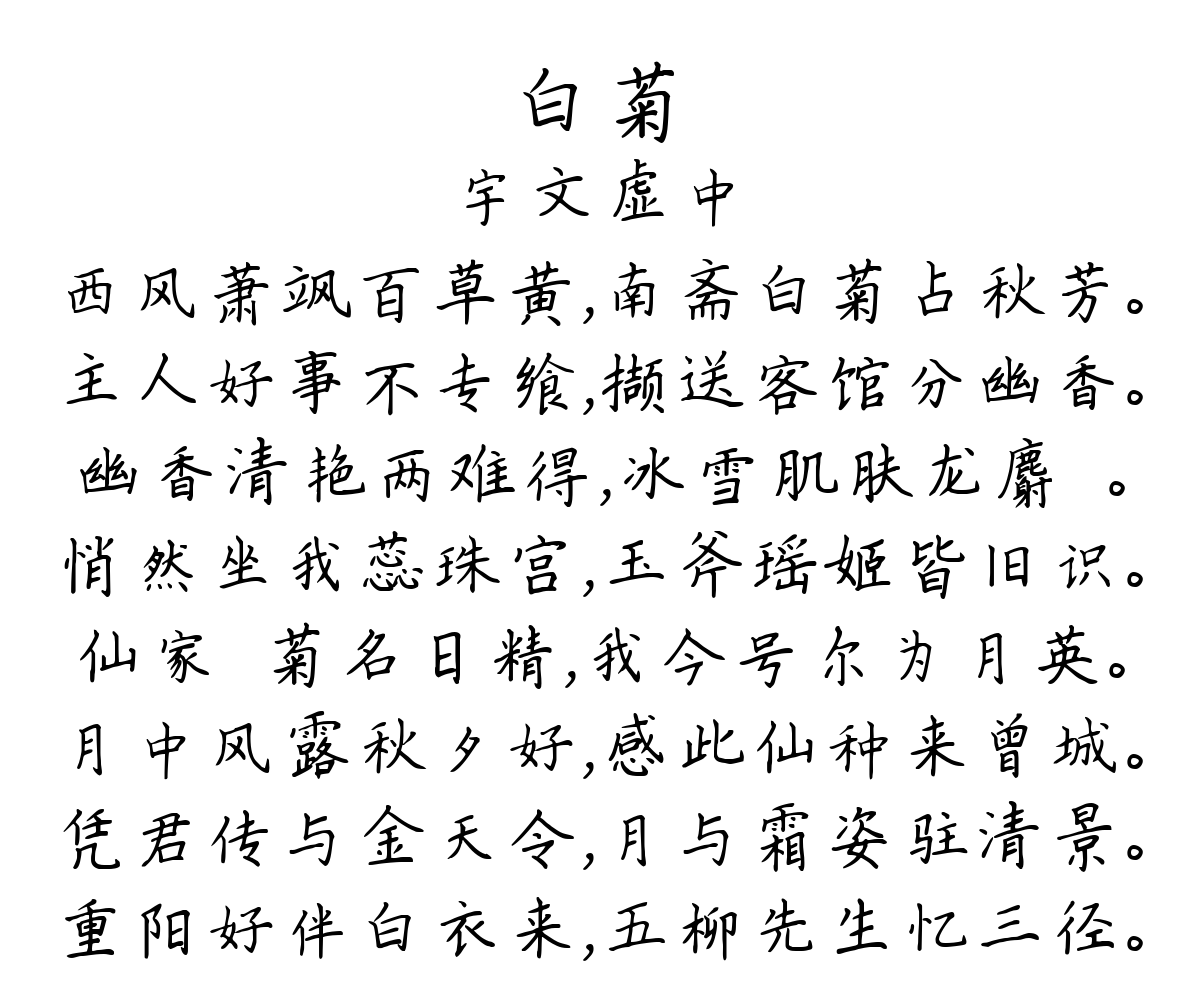 白菊
宇文虚中
西风萧飒百草黄,南斋白菊占秋芳。
主人好事不专飨,撷送客馆分幽香。
幽香清艳两难得,冰雪肌肤龙麝 。
悄然坐我蕊珠宫,玉斧瑶姬皆旧识。
仙家 菊名日精,我今号尔为月英。
月中风露秋夕好,感此仙种来曾城。
凭君传与金天令,月与霜姿驻清景。
重阳好伴白衣来,五柳先生忆三径。